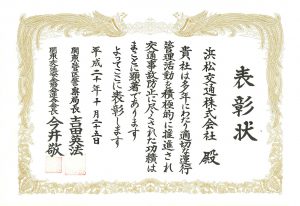 表彰状
浜松交通株式会社 殿
貴社は多年にわたり適切な運行
管理活動を積極的に推進され
交通事故防止に尽くされた功績は
まことに顕著であります
よってここに表彰します
平成二十年十月二十五日
関東管区警察局長 吉田英法
今井敬